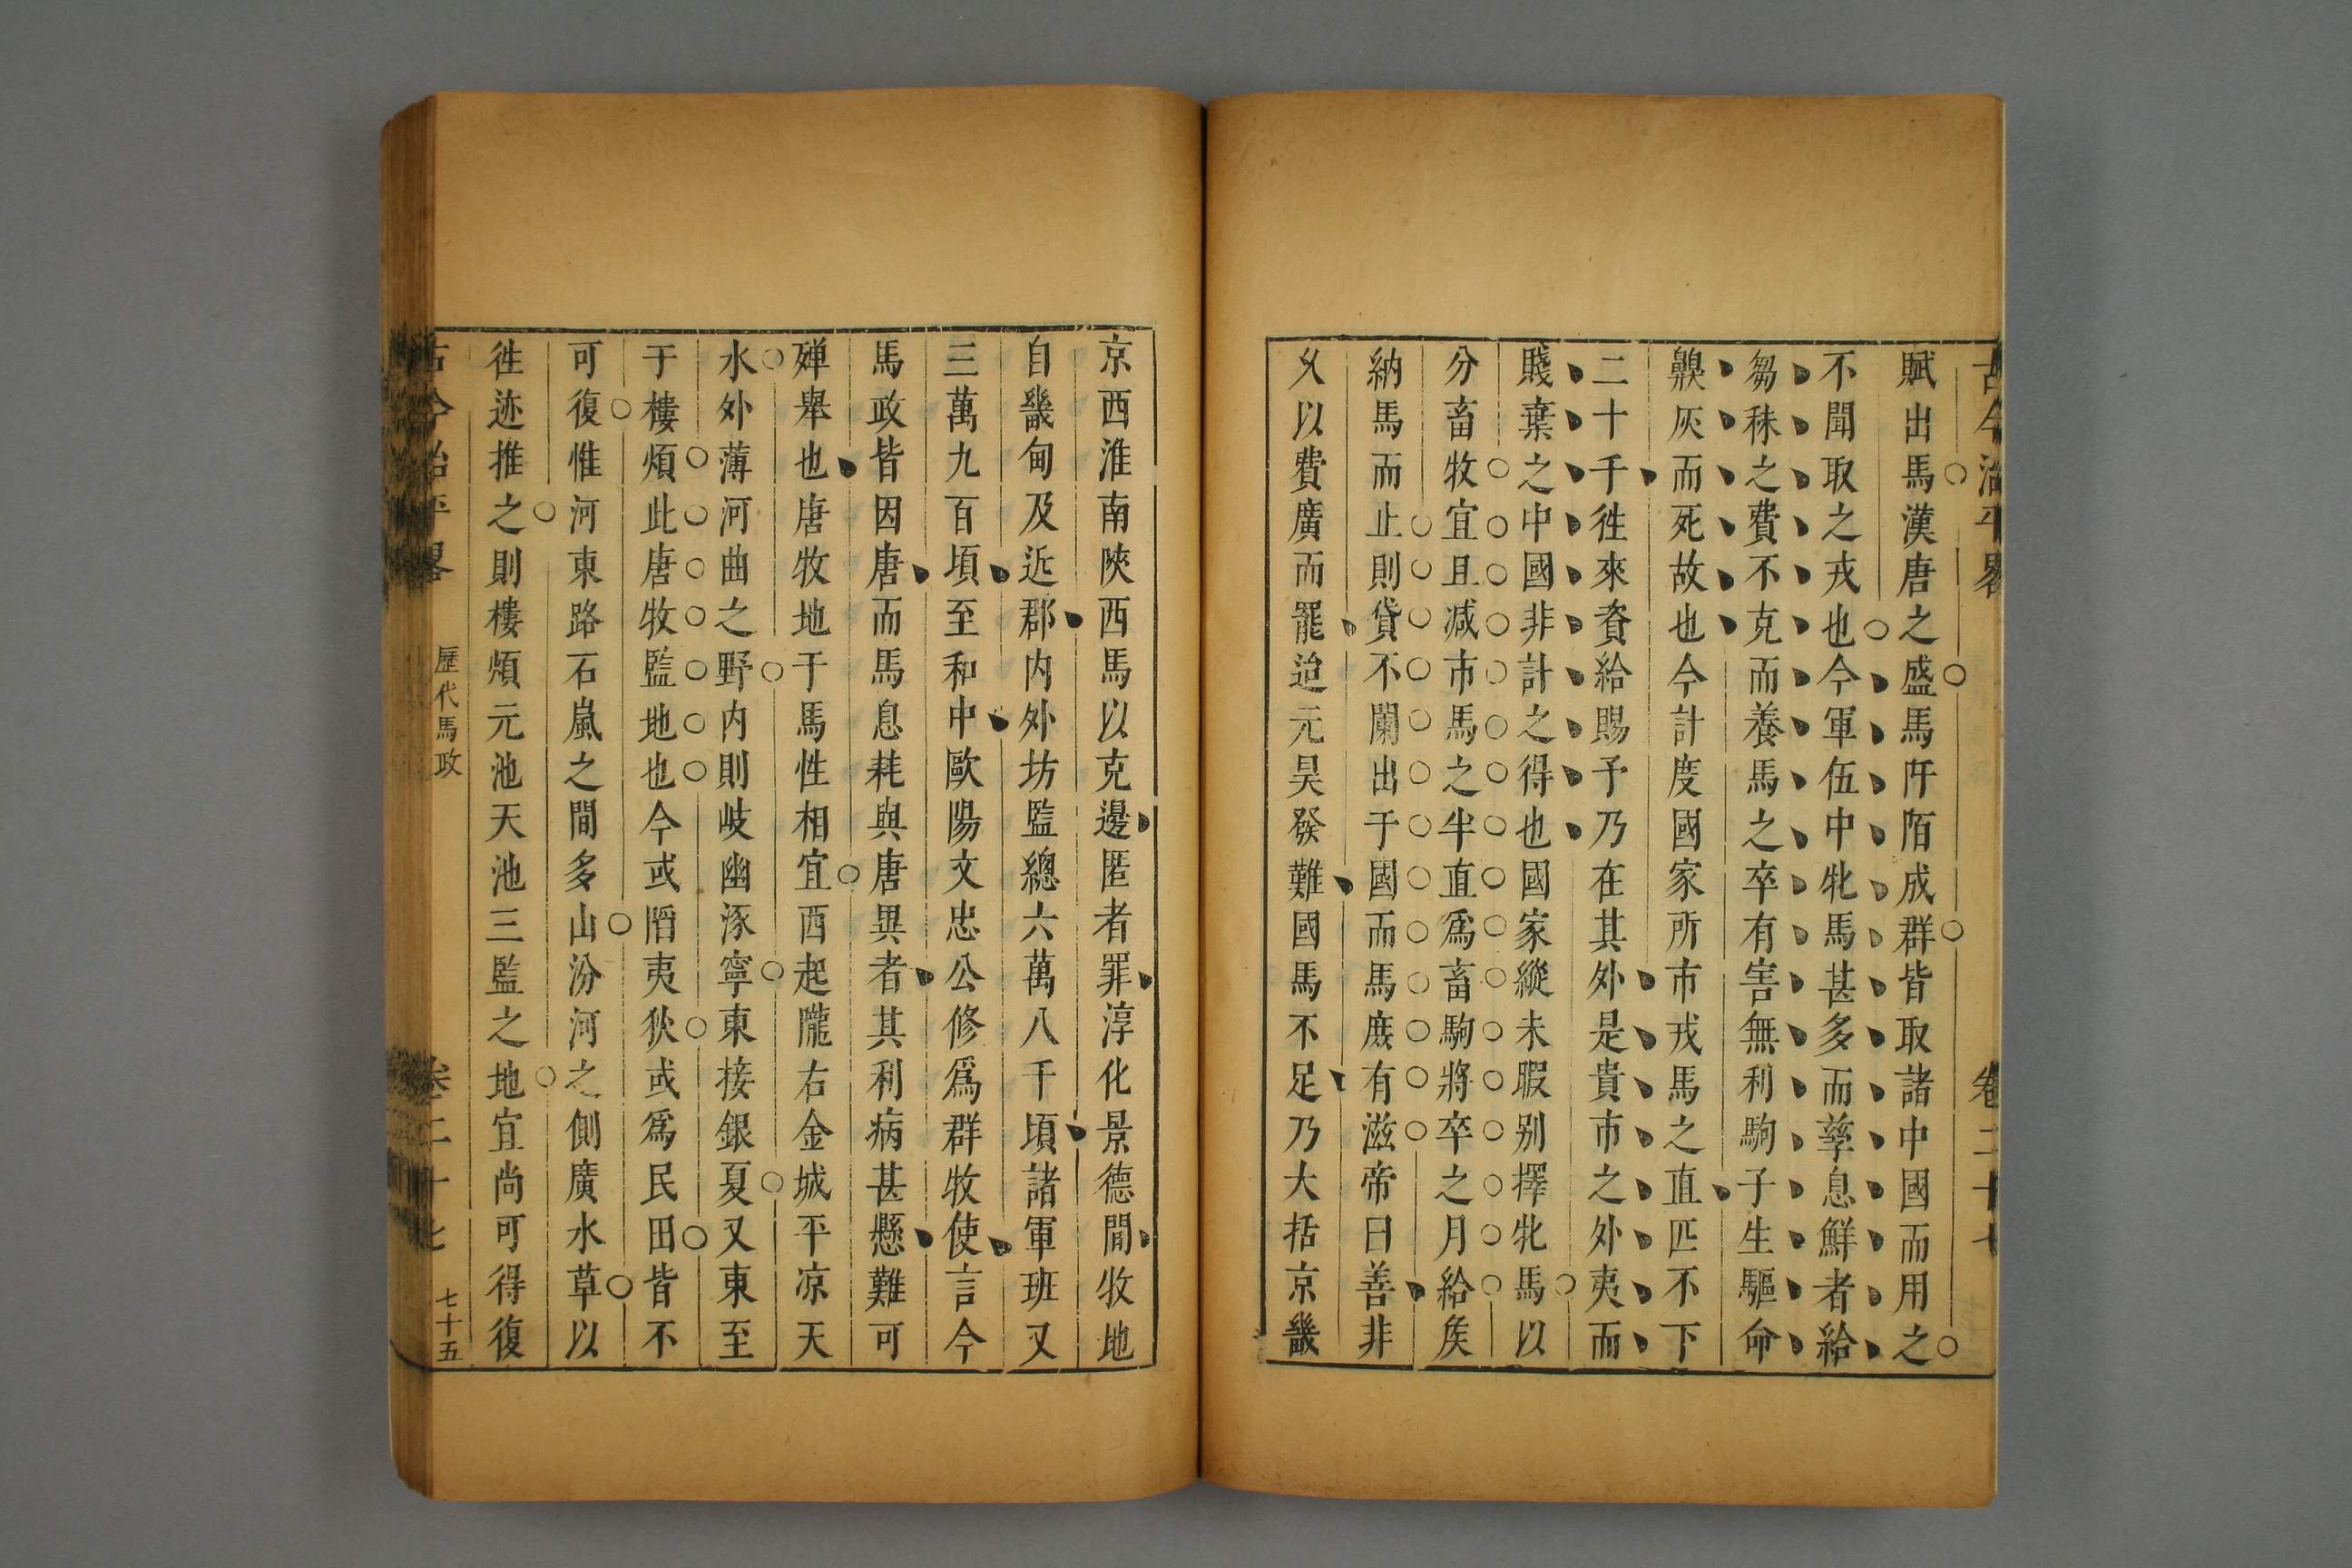 古今治平畧 卷二十七
賦出馬漢唐之盛馬阡陌成群皆取諸中國而用之
不聞取之戎也今軍伍中牝馬甚多而孳息鮮者給
芻秣之費不克而養馬之卒有害無利駒子生驅命
鼽灰而死故也今計度國家所市戎馬之直匹不下
二十千徃來資給賜予乃在其外是貴市之外夷而
賤棄之中國非計之得也國家縱未暇别擇牝馬以
分畜牧宜且减市馬之半直爲畜駒將卒之月給矦
納馬而止則貸不闌出于國而馬庶有滋帝曰善非
乆以費廣而罷迨元昊發難國馬不足乃大括京畿
京西淮南陝西馬以克邊匿者罪淳化景德閒牧地
自畿甸及近郡内外坊監總六萬八千頃諸軍班又
三萬九百頃至和中歐陽文忠公修爲群牧使言今
馬政皆因唐而馬息耗與唐異者其利病甚懸難可
殫舉也唐牧地于馬性相宜西起隴右金城平凉天
水外薄河曲之野内則岐幽涿寧東接銀夏又東至
于樓煩此唐牧監地也今或䧟夷狄或爲民田皆不
可復惟河東路石嵐之間多山汾河之側廣水草以
徃迹推之則樓煩元池天池三監之地宜尚可得復
古今治平畧 歷代馬政 卷二十七 七十五